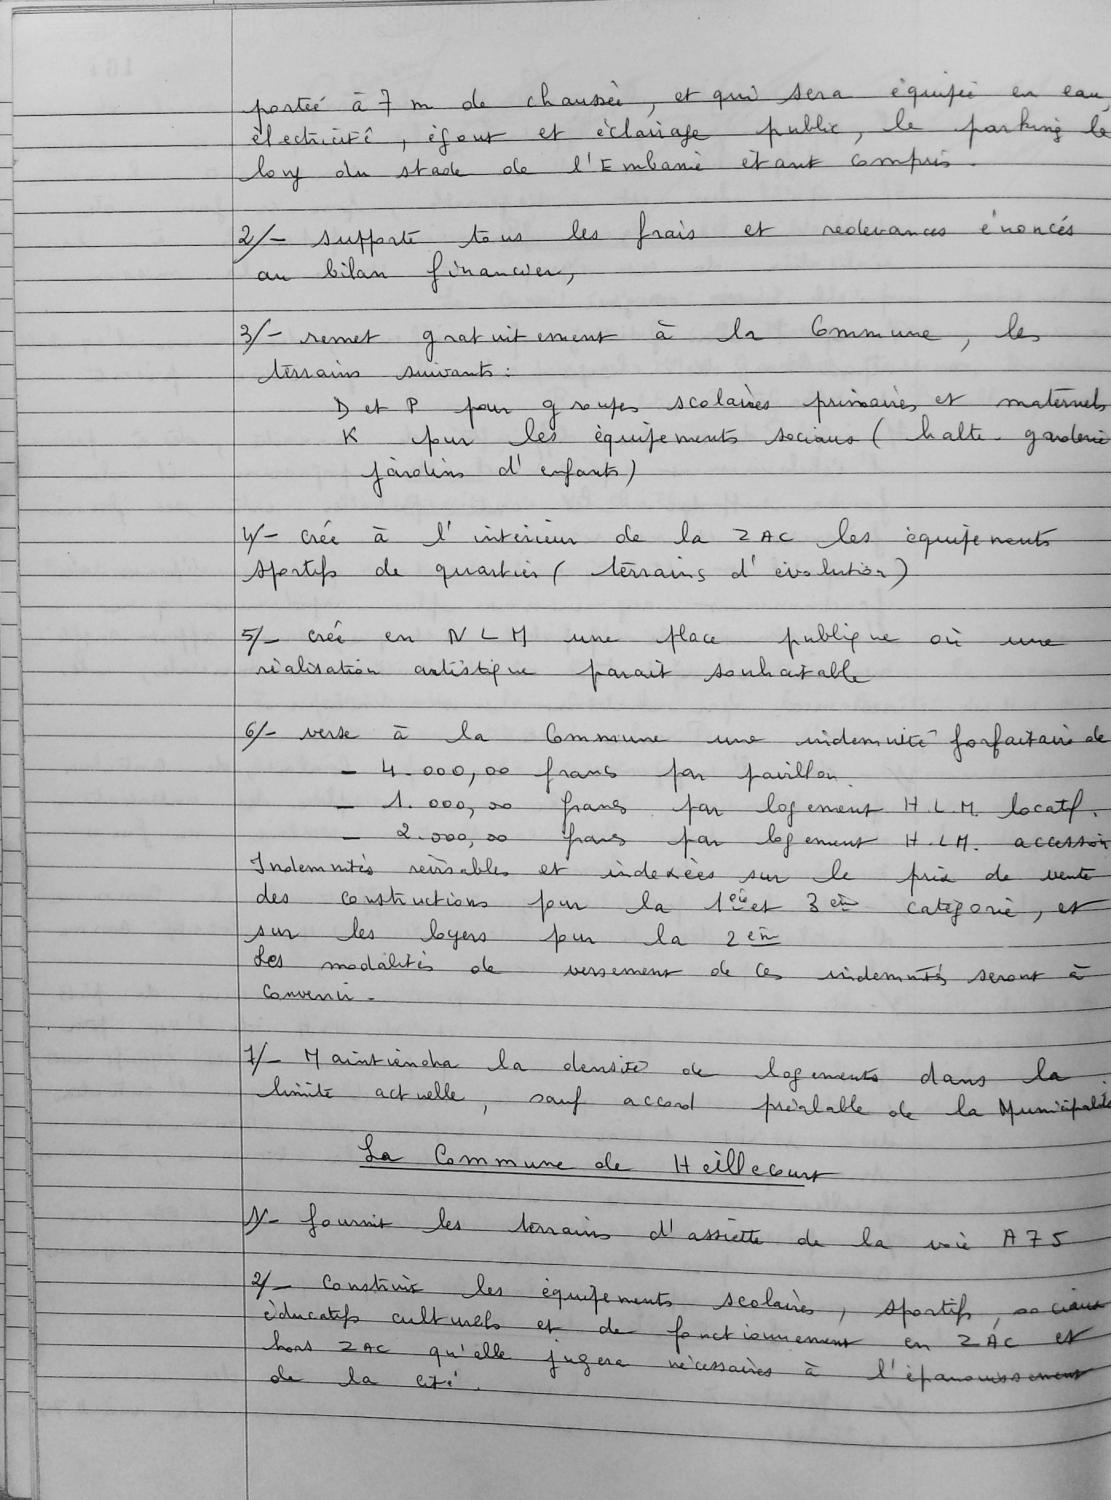 portée à 7 m de chaussée, et qui sera équipée en eau,
électricité, égout et éclairage public, le parking le
long du stade de l'Embanie étant compris.
2/- supporte tous les frais et redevances énoncés
au bilan financier,
3/- remet gratuitement à la Commune, les
terrains suivants :
D et P pour groupes scolaires primaires et maternels
K pour les équipements sociaux ( halte-garderie
jardins d'enfants)
4/- crée à l'intérieur de la ZAC les équipements
sportifs de quartier ( terrains d'évolution)
5/- crée en NLM une place publique où une
réalisation artistique parait souhaitable
6/- verse à la Commune une indemnité forfaitaire de
- 4.000,00 francs par pavillon
- 1.000,00 francs par logement H.L.M. locatif.
- 2.000,00 francs par logement H.L.M. accession
Indemnités révisables et indexées sur le prix de vente
des constructions pour la 1ère et 3èm catégorie, et
sur les loyers pour la 2èm
Les modalités de versement de ces indemnités seront à
convenir.
7/- Maintiendra la densité de logements dans la
limite actuelle, sauf accord préalable de la Municipalité
La Commune de Heillecourt
1/- fournit les terrains d'assiette de la voie A75
2/- construit les équipements scolaires, sportifs, sociaux
éducatifs culturels et de fonctionnement en ZAC et
hors ZAC qu'elle jugera nécessaires à l'épanouissement
de la cité.